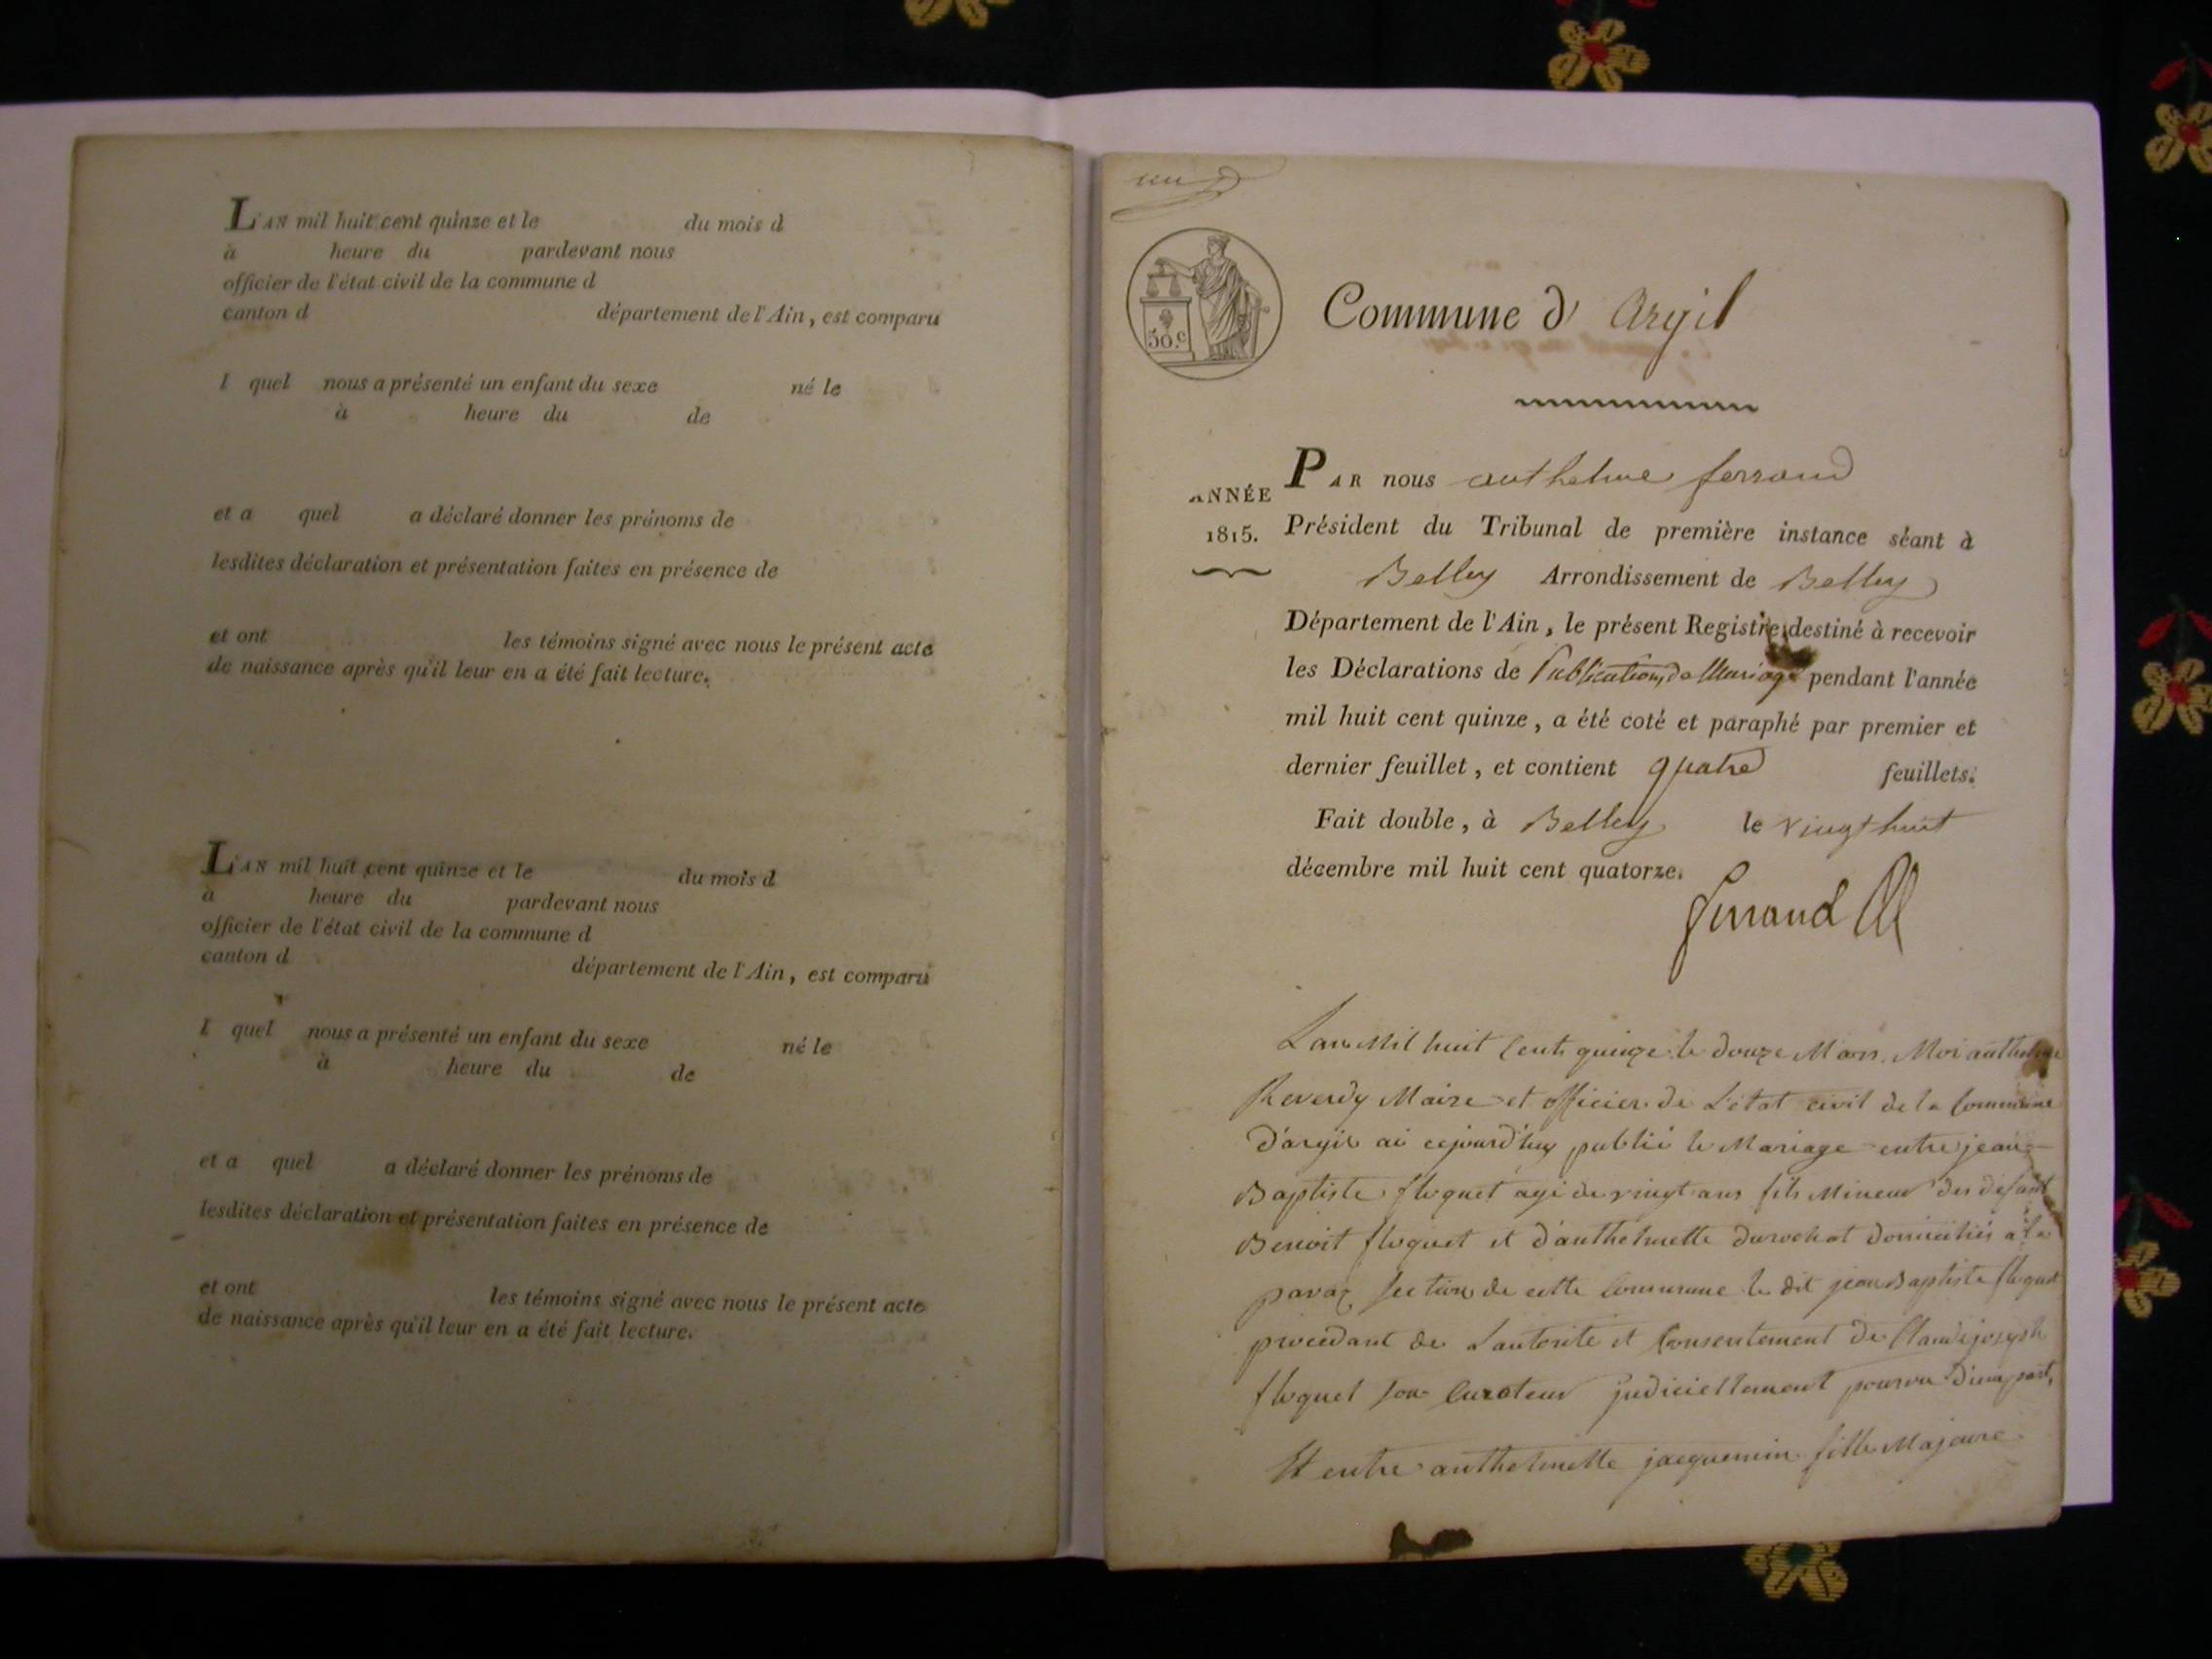 L'AN mil huit cent quinze et le du mois d
à heure du pardevant nous
officier de l'état civil de la commune d
canton d département de l'Ain, est comparu
l quel nous a présenté un enfant du sexe né le
à heure du de
et a quel a déclaré donner les prénoms de
lesdites déclaration et présentation faites en présence de
et ont les témoins signé avec nous le présent acte
de naissance après qu'il leur en a été fait lecture.
L'AN mil huit cent quinze et le du mois d
à heure du pardevant nous
officier de l'état civil de la commune d
canton d département de l'Ain, est comparu
l quel nous a présenté un enfant du sexe né le
à heure du de
et a quel a déclaré donner les prénoms de
lesdites déclaration et présentation faites en présence de
et ont les témoins signé avec nous le présent acte
de naissance après qu'il leur en a été fait lecture.
un
50.c
Commune d' Argil
ANNÉE
1815.
PAR nous anthelme ferrand
Président du Tribunal de première instance séant à
Belley Arrondissement de Belley
Département de l'Ain, le présent Registre, destiné à recevoir
les Déclarations de Publications de Mariage pendant l'année
mil huit cent quinze, a été coté et paraphé par premier et
dernier feuillet, et contient quatre feuillets.
Fait double, à Belley le vingt huit
décembre mil huit cent quatorze.
Ferrand
L'an Mil huit Cent quinze le douze Mars. Moi anthelme
Reverdy Maire et officier de L'état civil de la Commune
d'argil ai cejourd'huy publié le Mariage entre jean
Baptiste floquet agé de vingt ans fils Mineur des défunt
Benoit floquet et d'anthelmette durochat domiciliés a la
pavaz section de cette Commune le dit jean Baptiste floquet
procedant de L'autorité et Consentement de Claude joseph
floquet son Curateur judiciellement pourvu d'une part,
Et entre anthelmette jacquemin fille Majeure